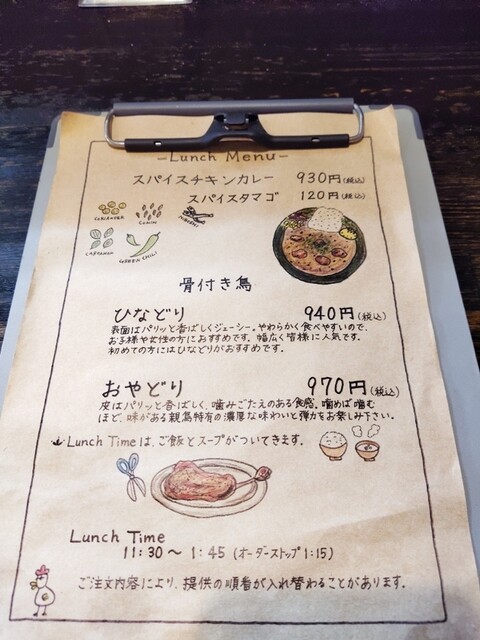 -Lunch Menu-
スパイスチキンカレー 930円(税込)
スパイスタマゴ 120円(税込)
CORIANDER
CUMIN
CARDAMON
GREEN CHILI
骨付き鳥
ひなどり 940円(税込)
表面はパリッと香ばしくジューシー。やわらかく食べやすいので、
お子様や女性の方におすすめです。幅広く皆様に人気です。
初めての方にはひなどりがおすすめです。
おやどり 970円(税込)
皮はパリッと香ばしく、噛みごたえのある食感。噛めば噛む
ほど、味がある親鳥特有の濃厚な味わいと弾力をお楽しみ下さい。
Lunch Timeは、ご飯とスープがついてきます。
Lunch Time
11:30〜1:45 (オーダーストップ1:15)
ご注文内容により、提供の順番が入れ替わることがあります。